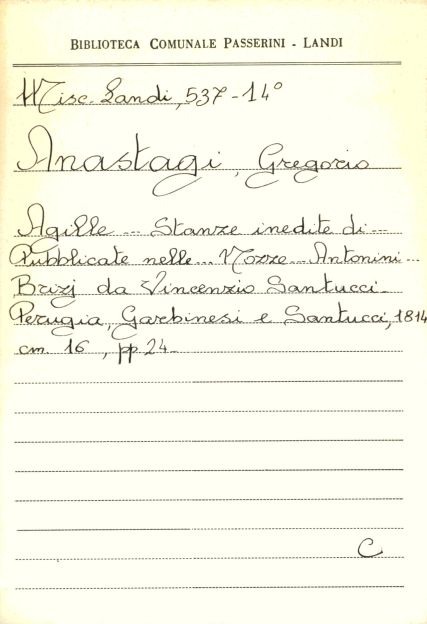 BIBLIOTECA COMUNALE PASSERINI - LANDI
Misc. Landi, 537 - 14°
Anastagi, Gregorio
Agille ... Stanze inedite di ...
Pubblicate nelle ... Nozze ... Antonini ...
Brizj da Vincenzio Santucci.
Perugia, Garbinesi e Santucci, 1814
cm. 16, pp 24.
C